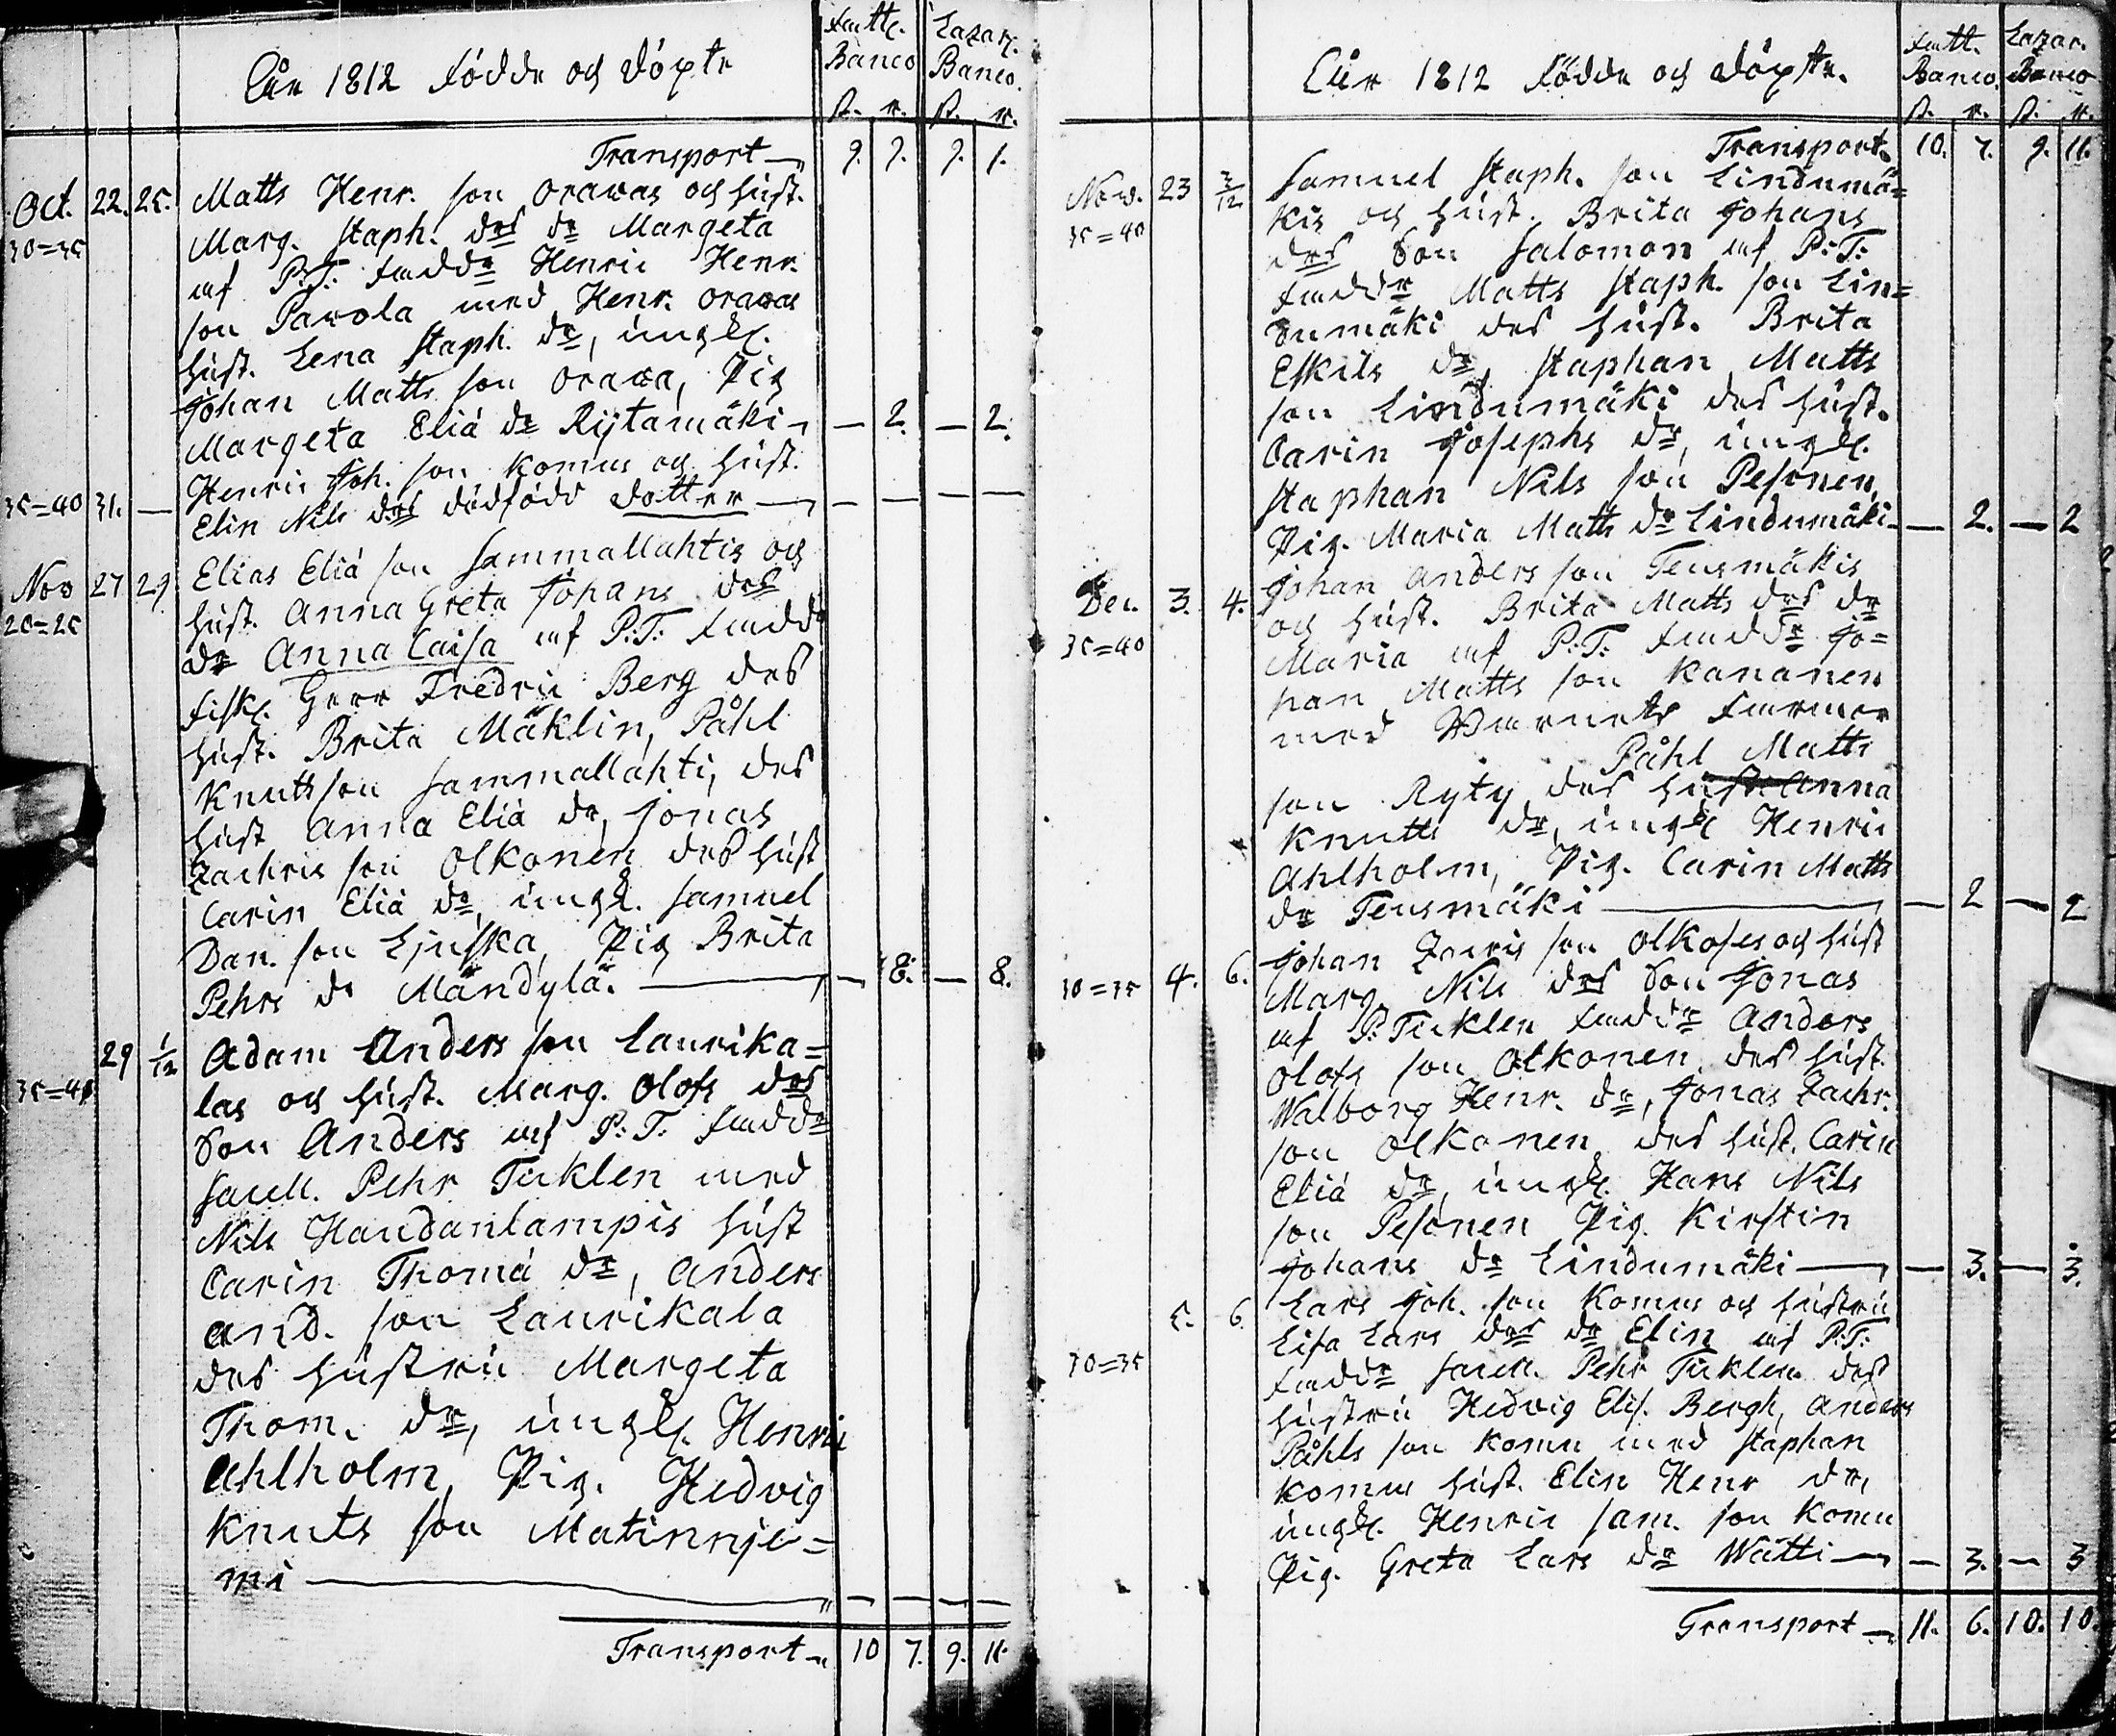 År 1812 Födde och Döpte
Fatt. Banco Lazar. Banco.
ß. r. ß. r.
Transport 9. 9. 9. 1.
Oct. 22. 25. Matts Henr. son Oravas och hust.
30=35 Marg. Staph. drs dr Margeta
af P.T. Faddr Henric Henr.
son Pavola med Henr. Oravas
hust. Lena Staph. dr, ungk.
Johan Matts son Orava, Pig
Margeta Eliæ dr Rytämäki — 2. — 2.
Henric Joh. son Komus och hust.
35=40 31. — Elin Nils drs dödfödd dotter — — — —
Nov 27 29 Elias Eliæ son Sammallahtis och
hust. Anna Greta Johans drs
20=25 dr Anna Caisa af P.T. Faddr
Fisk. Herr Fredric Berg des
hust. Brita Mäklin, Påhl
Knuts son Sammallahti, des
hust Anna Eliæ dr, Jonas
Zachris son Olkonen des hust
Carin Eliæ dr, ungk. Samuel
Dan. son Ljuska, Pig Brita
Pehrs dr Mändylä. — 8. — 8.
29 1/12 Adam Anders son Laurika=
35=40 las och hust. Marg. Olofs drs
Son Anders af P.T. Faddr
Pehr Ticklen med
Nils Haudanlampis hust
Carin Thomæ dr, Anders
And. son Laurikala
des hustru Margeta
Thom. dr, ungk. Henric
Ahlholm, Pig. Hedvig
Knuts son Matinnje=
mi — — — —
Transport 10 7. 9. 11.
År 1812 Födde och Döpte.
Fatt. Banco. Lazar. Banco
ß. r. ß. r.
Transport. 10. 7. 9. 11.
Nov. 23 2/12 Samuel Staph. son Lindumä=
35=40 kis och hust. Brita Johans
drs Son Salomon af P.T.
Faddr Matts Staph. son Lin=
dumäki des hust. Brita
Eskils dr, Staphan Matts
son Lindumäki des hust.
Carin Josephs dr, ungk.
Staphan Nils son Pesonen,
Pig. Maria Matts dr Lindumäki — 2. — 2
Dec. 3. 4. Johan Anders son Teusmäkis
och hust. Brita Matts drs dr
35=40 Maria af P.T. Faddr Jo=
han Matts son Kananen
med
Påhl Matts
son Ryty des hust Anna
Knutts dr, ungk Henric
Ahlholm, Pig. Carin Matts
dr Teusmäki — 2 — 2
Johan Zacris son Olkoses och hust
30=35 4. 6. Marg. Nils drs Son Jonas
af P. Ticklen Faddr Anders
Olofs son Olkonen des hust.
Walborg Henr. dr, Jonas Zachr.
son Olkonen des hust. Carin
Eliæ dr, ungk. Hans Nils
son Pesonen Pig. Kirstin
Johans dr Lindumäki — 3. — 3.
5. 6. Lars Joh. son Komus och hustru
Lisa Lars drs dr Elin af P.T.
30=35 Faddr Pehr Ticklen des
hustru Hedvig Elis. Bergh, Anders
Påhls son Komu med Staphan
Komus hust. Elin Henr dr,
ungk. Henric Sam. son Komu
Pig. Greta Lars dr Wätti — 3. — 3
Transport 11. 6. 10. 10.